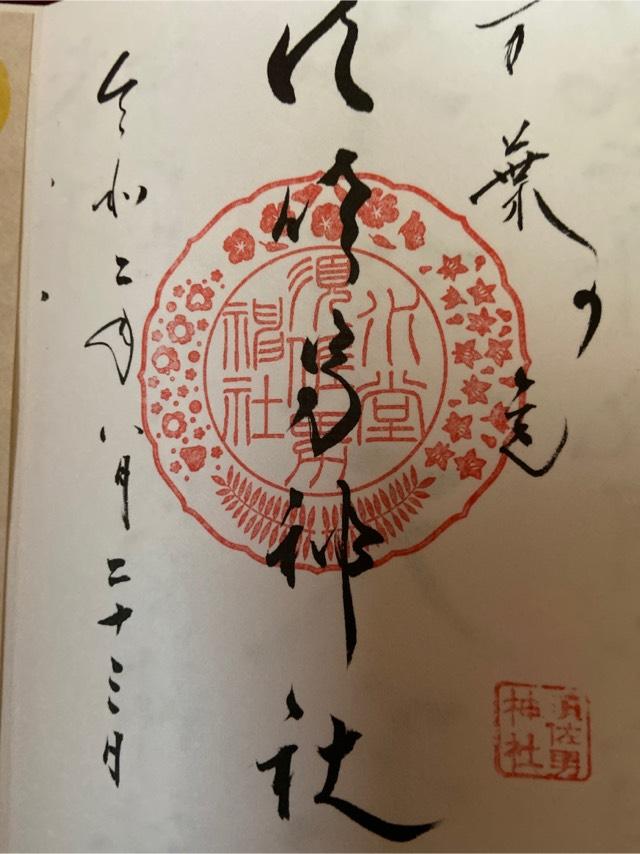 万葉の
神社
令和二年八月二十三日
水堂
須佐男
神社
須佐男
神社